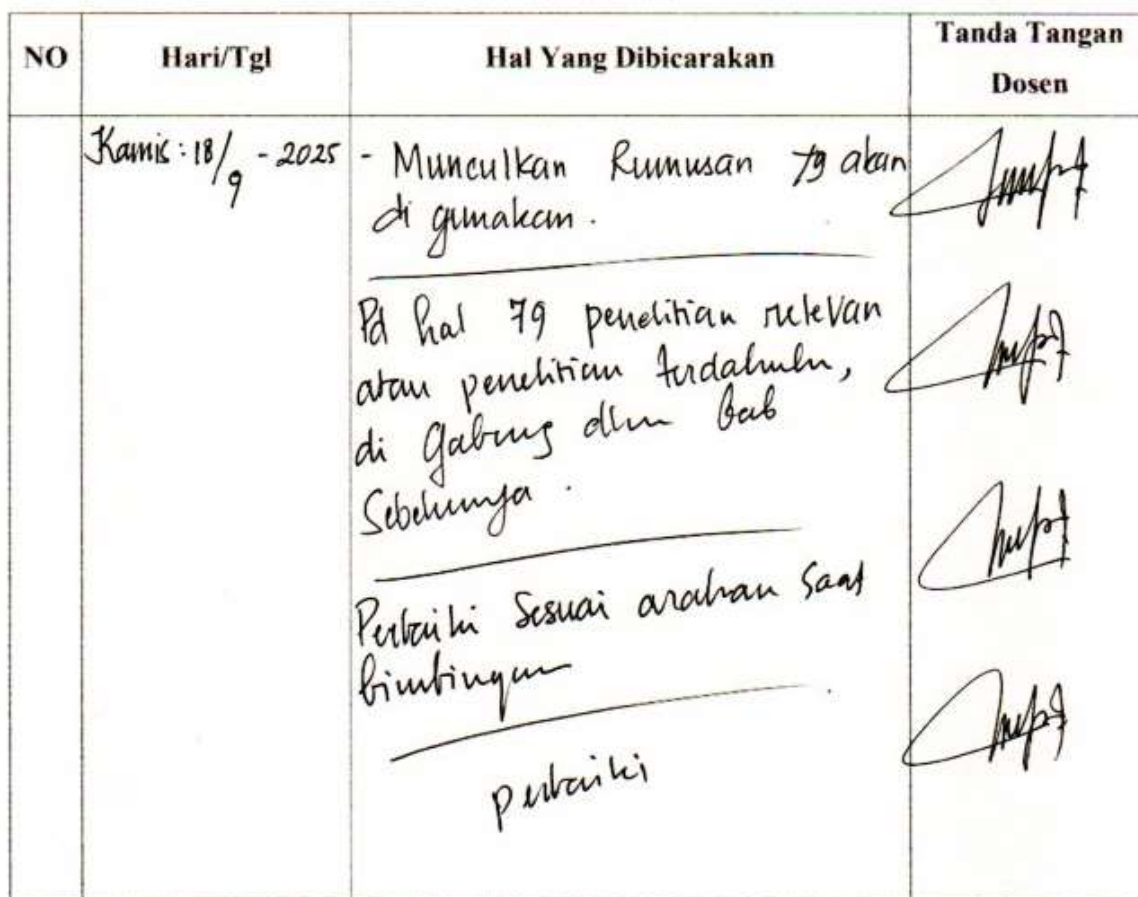 NO Hari/Tgl Hal Yang Dibicarakan Tanda Tangan Dosen
Kamis : 18/9 - 2025
- Munculkan Rumusan yg akan
di gunakan.
Pd hal 79 penelitian relevan
atau penelitian terdahulu,
di Gabung dlm bab
Sebelumnya.
Perbaiki Sesuai arahan Saat
bimbingan
perbaiki